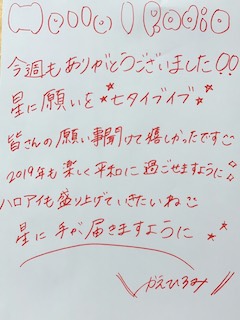 Hello! Radio
今週もありがとうございました!!
星に願いを☆七夕イブイブ☆
皆さんの願い事聞けて嬉しかったです
2019年も楽しく平和に過ごせますように
ハロアイも盛り上げていきたいね
星に手が届きますように
かえひろみ